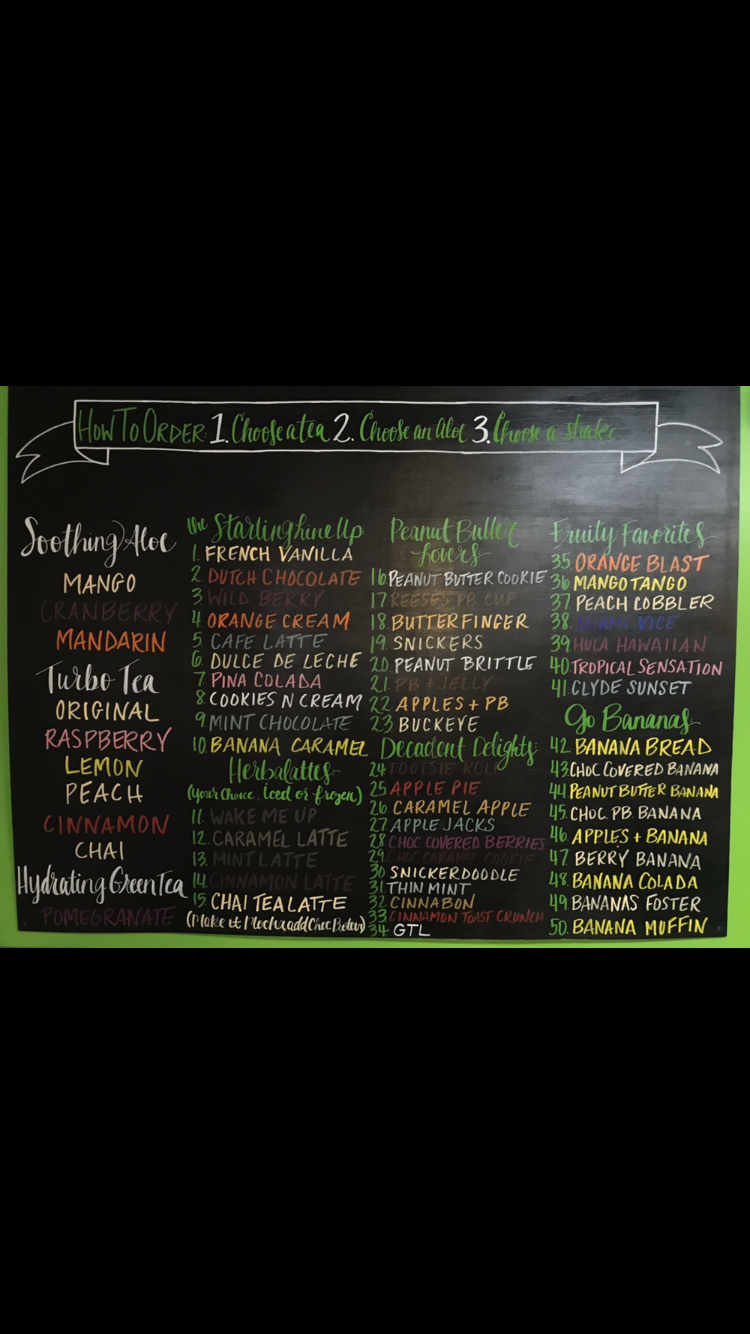 How To Order: 1. Choose a tea 2. Choose an aloe 3. Choose a shake
Soothing Aloe
MANGO
CRANBERRY
MANDARIN
Turbo Tea
ORIGINAL
RASPBERRY
LEMON
PEACH
CINNAMON
CHAI
Hydrating Green Tea
POMEGRANATE
the Starting Line Up
1. FRENCH VANILLA
2. DUTCH CHOCOLATE
3. WILD BERRY
4. ORANGE CREAM
5. CAFE LATTE
6. DULCE DE LECHE
7. PINA COLADA
8. COOKIES N CREAM
9. MINT CHOCOLATE
10. BANANA CARAMEL
Herbalattes
(Your Choice, Iced or frozen)
11. WAKE ME UP
12. CARAMEL LATTE
13. MINT LATTE
14. CINNAMON LATTE
15. CHAI TEA LATTE
(Make it Mocha add Choc Protein)
Peanut Butter
Lovers
16. PEANUT BUTTER COOKIE
17. REESES PB CUP
18. BUTTERFINGER
19. SNICKERS
20. PEANUT BRITTLE
21. PB + JELLY
22. APPLES + PB
23. BUCKEYE
Decadent Delights
24. TOOTSIE ROLL
25. APPLE PIE
26. CARAMEL APPLE
27. APPLE JACKS
28. CHOC COVERED BERRIES
29. CHOC CARAMEL COOKIE
30. SNICKERDOODLE
31. THIN MINT
32. CINNABON
33. CINNAMON TOAST CRUNCH
34. GTL
Fruity Favorites
35. ORANGE BLAST
36. MANGO TANGO
37. PEACH COBBLER
38. MIAMI VICE
39. HULA HAWAIIAN
40. TROPICAL SENSATION
41. CLYDE SUNSET
Go Bananas
42. BANANA BREAD
43. CHOC COVERED BANANA
44. PEANUT BUTTER BANANA
45. CHOC PB BANANA
46. APPLES + BANANA
47. BERRY BANANA
48. BANANA COLADA
49. BANANAS FOSTER
50. BANANA MUFFIN